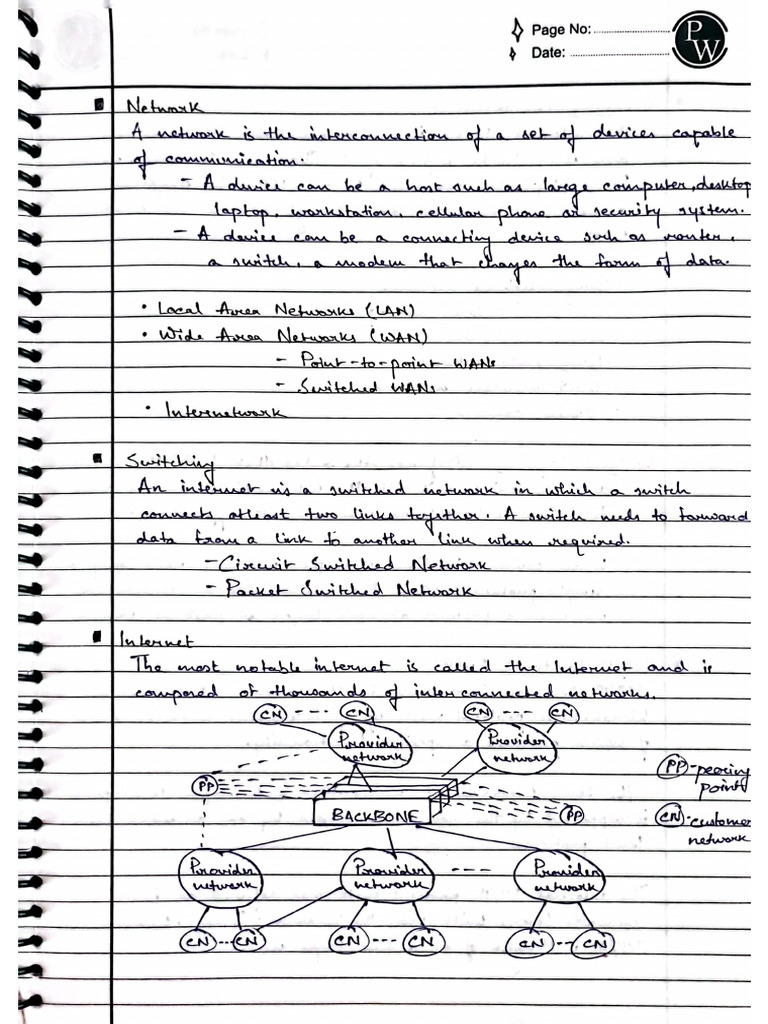 Page No:
Date:
PW
Network
A network is the interconnection of a set of devices capable
of communication.
- A device can be a host such as large computer, desktop
laptop, workstation, cellular phone or security system.
- A device can be a connecting device such as router,
a switch, a modem that changes the form of data.
• Local Area Networks (LAN)
• Wide Area Networks (WAN)
- Point-to-point WANs
- Switched WANs
• Internetwork
Switching
An internet is a switched network in which a switch
connects atleast two links together. A switch needs to forward
data from a link to another link when required.
- Circuit Switched Network
- Packet Switched Network
Internet
The most notable internet is called the Internet and is
composed of thousands of interconnected networks.
CN --- CN CN --- CN
Provider
network
Provider
network
PP - peering
point
PP
BACKBONE
PP
CN - customer
network
Provider
network
Provider
network
---
Provider
network
CN --- CN CN --- CN CN -- CN